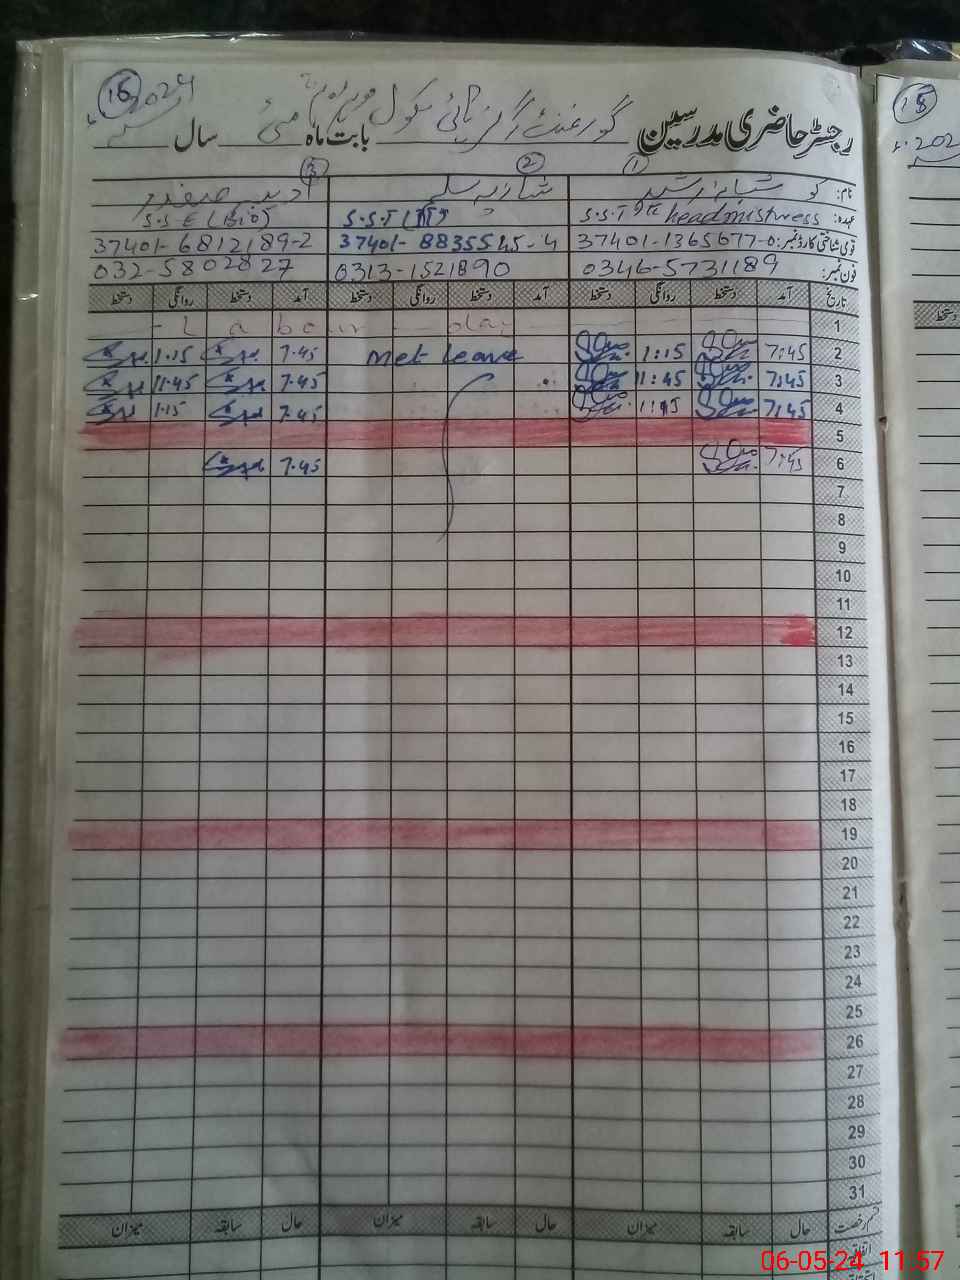 16 2024
رجسٹر حاضری مدرسین گورنمنٹ گرلز ہائی سکول بابت ماہ مئی سال
① ② ③
نام: شبانہ رشید شازیہ سلیم
عہدہ: S.S.T I/c headmistress S.S.T (IT) S.S.E (Bio)
قومی شناختی کارڈ نمبر: 37401-1365677-0 37401-8835545-4 37401-6812189-2
فون نمبر: 0346-5731189 0313-1521890 032-5802827
تاریخ آمد دستخط روانگی دستخط آمد دستخط روانگی دستخط آمد دستخط روانگی دستخط
1 Labour day
2 7:45 1:15 Met leave 7.45 1.15
3 7:45 11:45 7.45 11.45
4 7:45 1:15 7.45 1.15
5
6 7:45 7.45
7
8
9
10
11
12
13
14
15
16
17
18
19
20
21
22
23
24
25
26
27
28
29
30
31
قسم رخصت حال سابقہ میزان حال سابقہ میزان حال سابقہ میزان
اتفاقیہ
15
202
دستخط
06-05-24 11:57